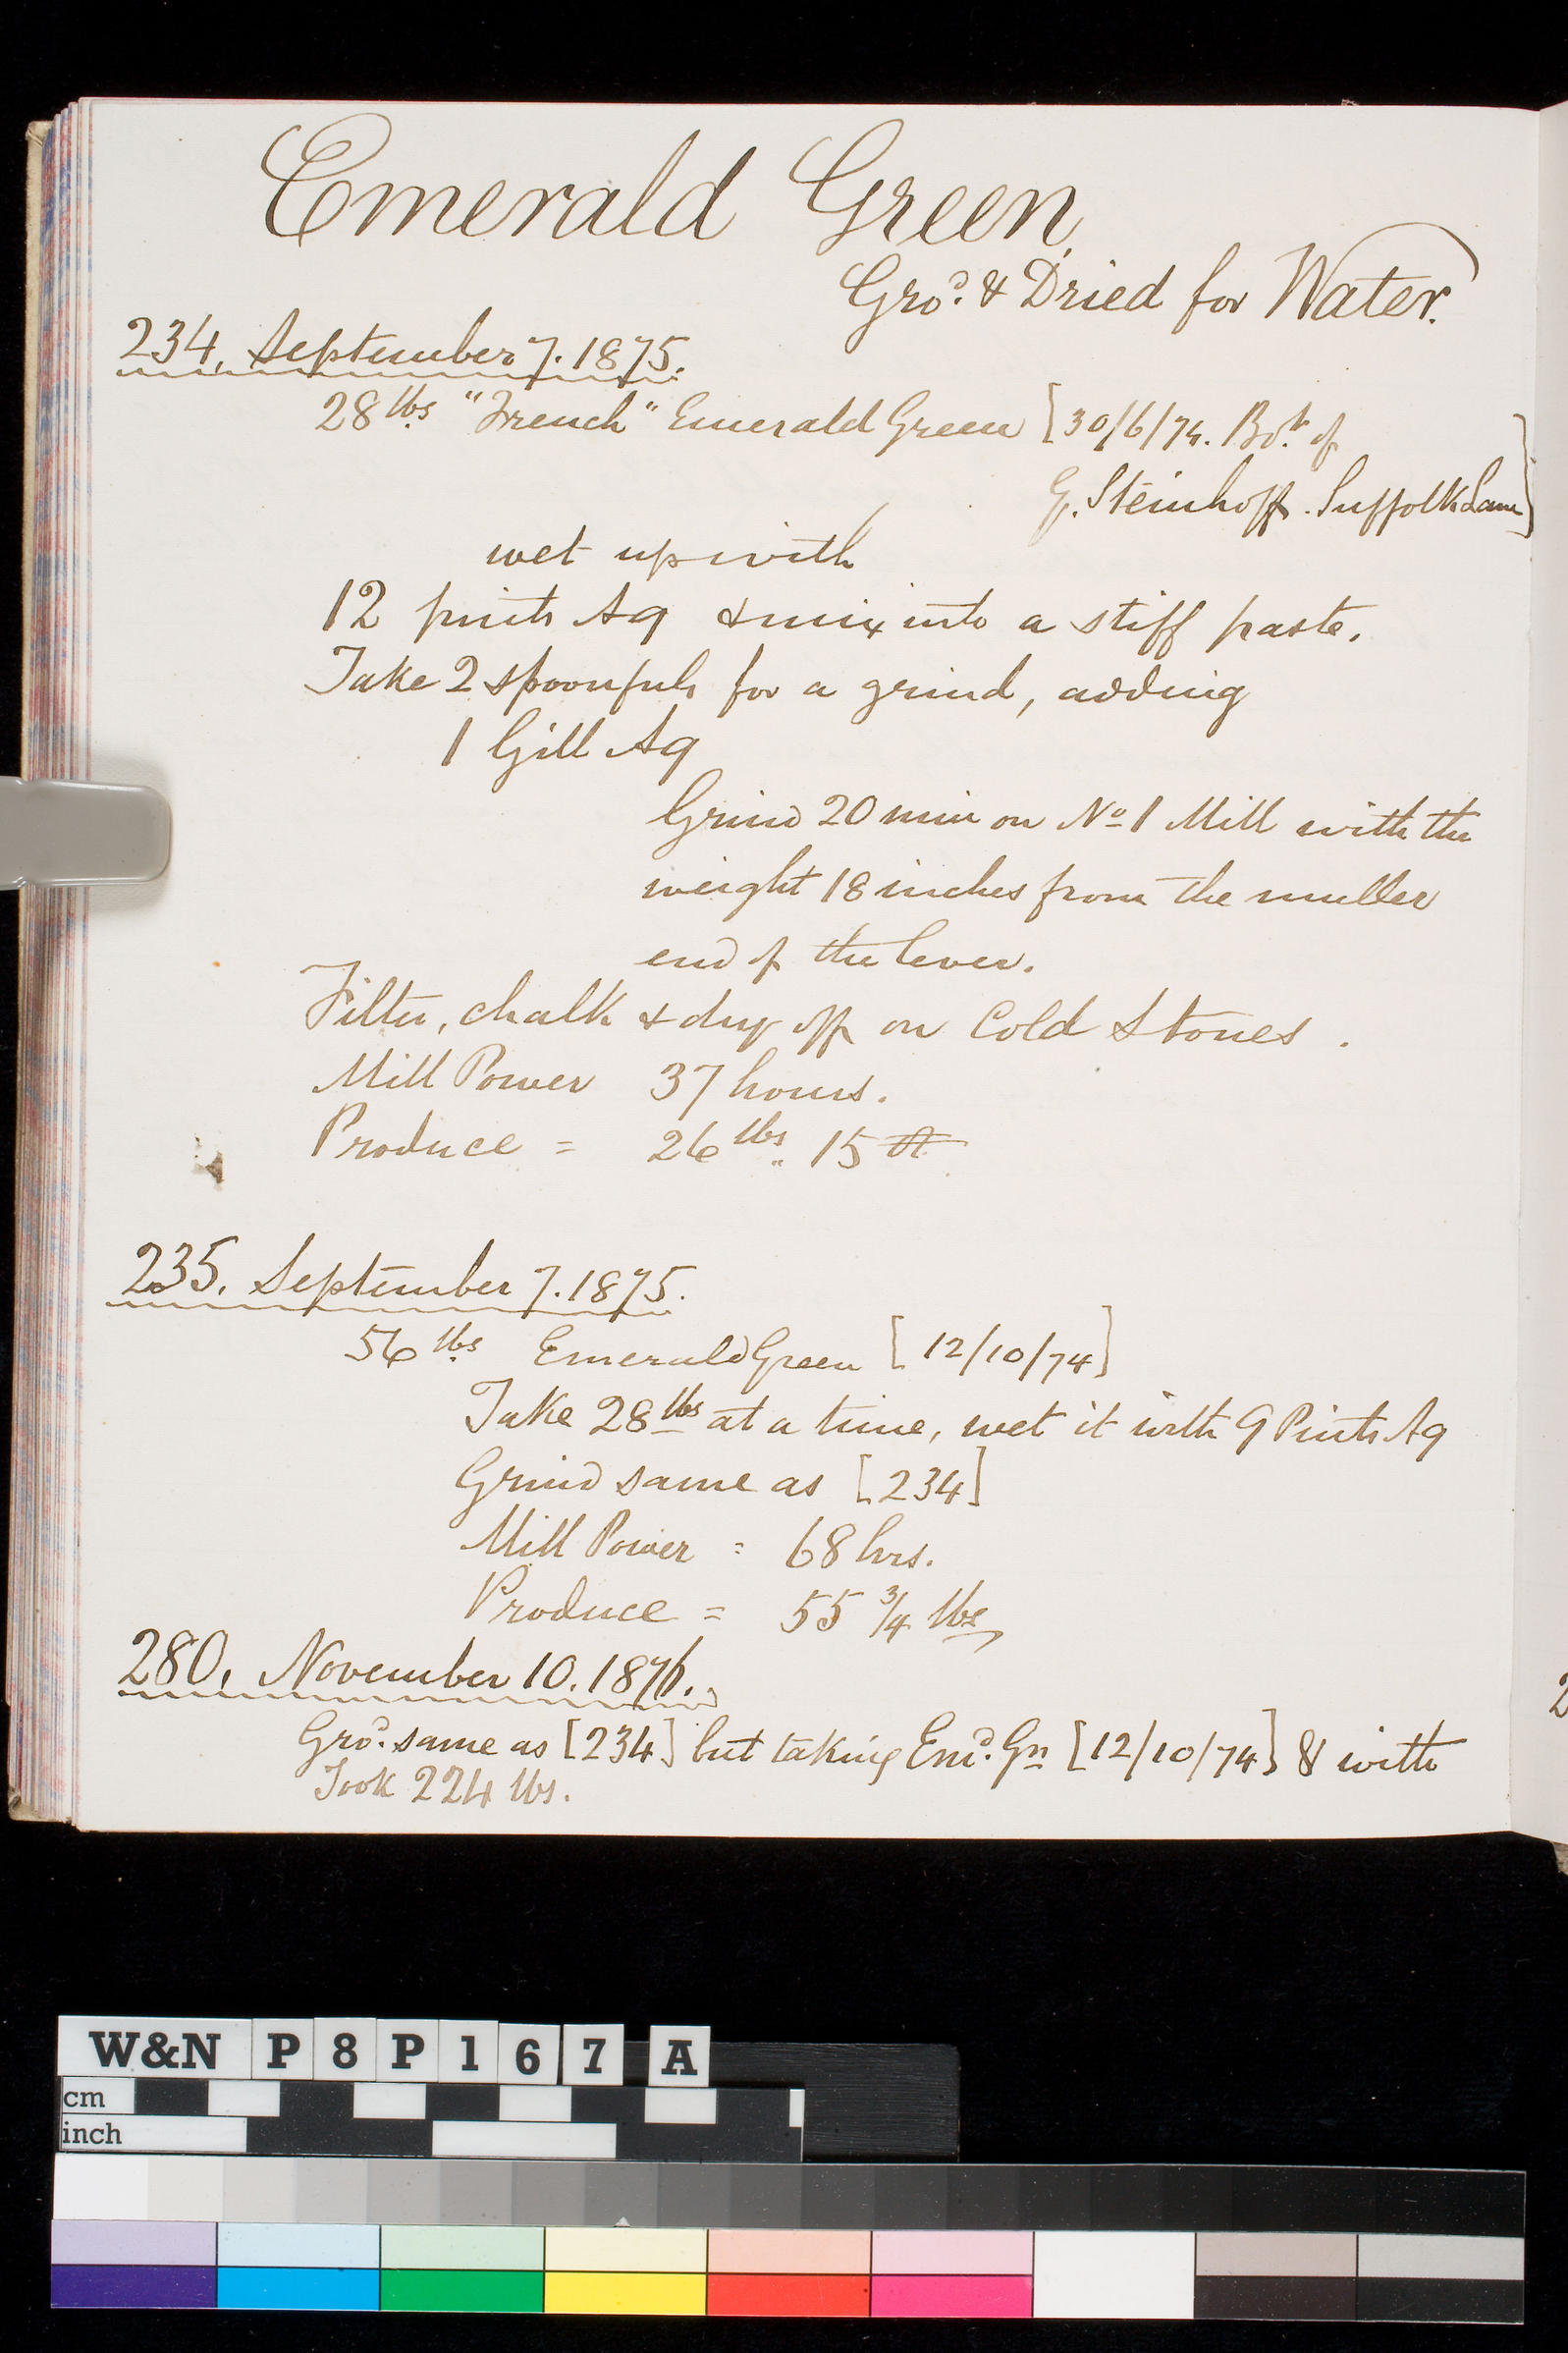 Emerald Green,
Gro.d & Dried for Water.
234. September 7. 1875.
28 lbs "French" Emerald Green [30/6/74. Bo.t of
G. Steinhoff. Suffolk Lane]
wet up with
12 pints Aq & mix into a stiff paste.
Take 2 spoonfuls for a grind, adding
1 Gill Aq
Grind 20 min on No 1 Mill with the
weight 18 inches from the muller
end of the lever.
Filter, chalk & dry off on Cold Stones.
Mill Power 37 hours.
Produce = 26 lbs. 15
235. September 7. 1875.
56 lbs Emerald Green [12/10/74]
Take 28 lbs at a time, wet it with 9 Pints Aq
Grind same as [234]
Mill Power = 68 hrs.
Produce = 55 3/4 lbs
280. November 10. 1876.
Gro.d same as [234] but taking Em.d Gn [12/10/74] & with
Took 224 lbs.
W&N P8P167 A
cm
inch